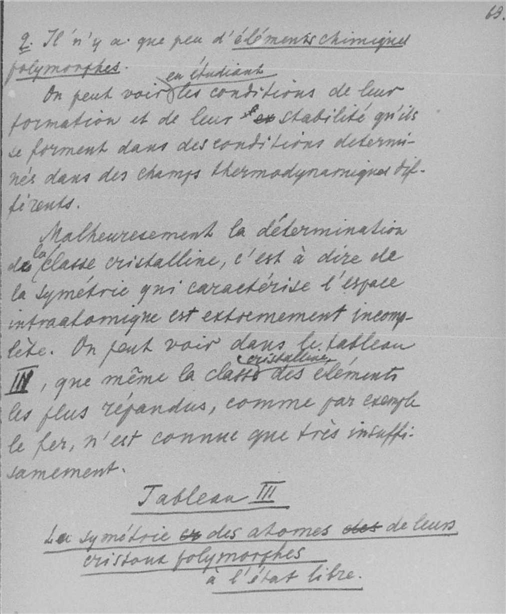 69.
9. Il n'y a que peu d'éléments chimiques
polymorphes.
en étudiant
On peut voir les conditions de leur
formation et de leur stabilité qu'ils
se forment dans des conditions determi-
nés dans des champs thermodynamiques dif-
férents.
Malheuresement la détermination
de la classe cristalline, c'est à dire de
la symétrie qui caractérise l'espace
intraatomique est extremement incomp-
lète. On peut voir dans le tableau
cristalline
III, que même la classe des éléments
les plus répandus, comme par exemple
le fer, n'est connue que très insuffi-
samement.
Tableau III
La symétrie des atomes des de leurs
cristaux polymorphes
à l'état libre.